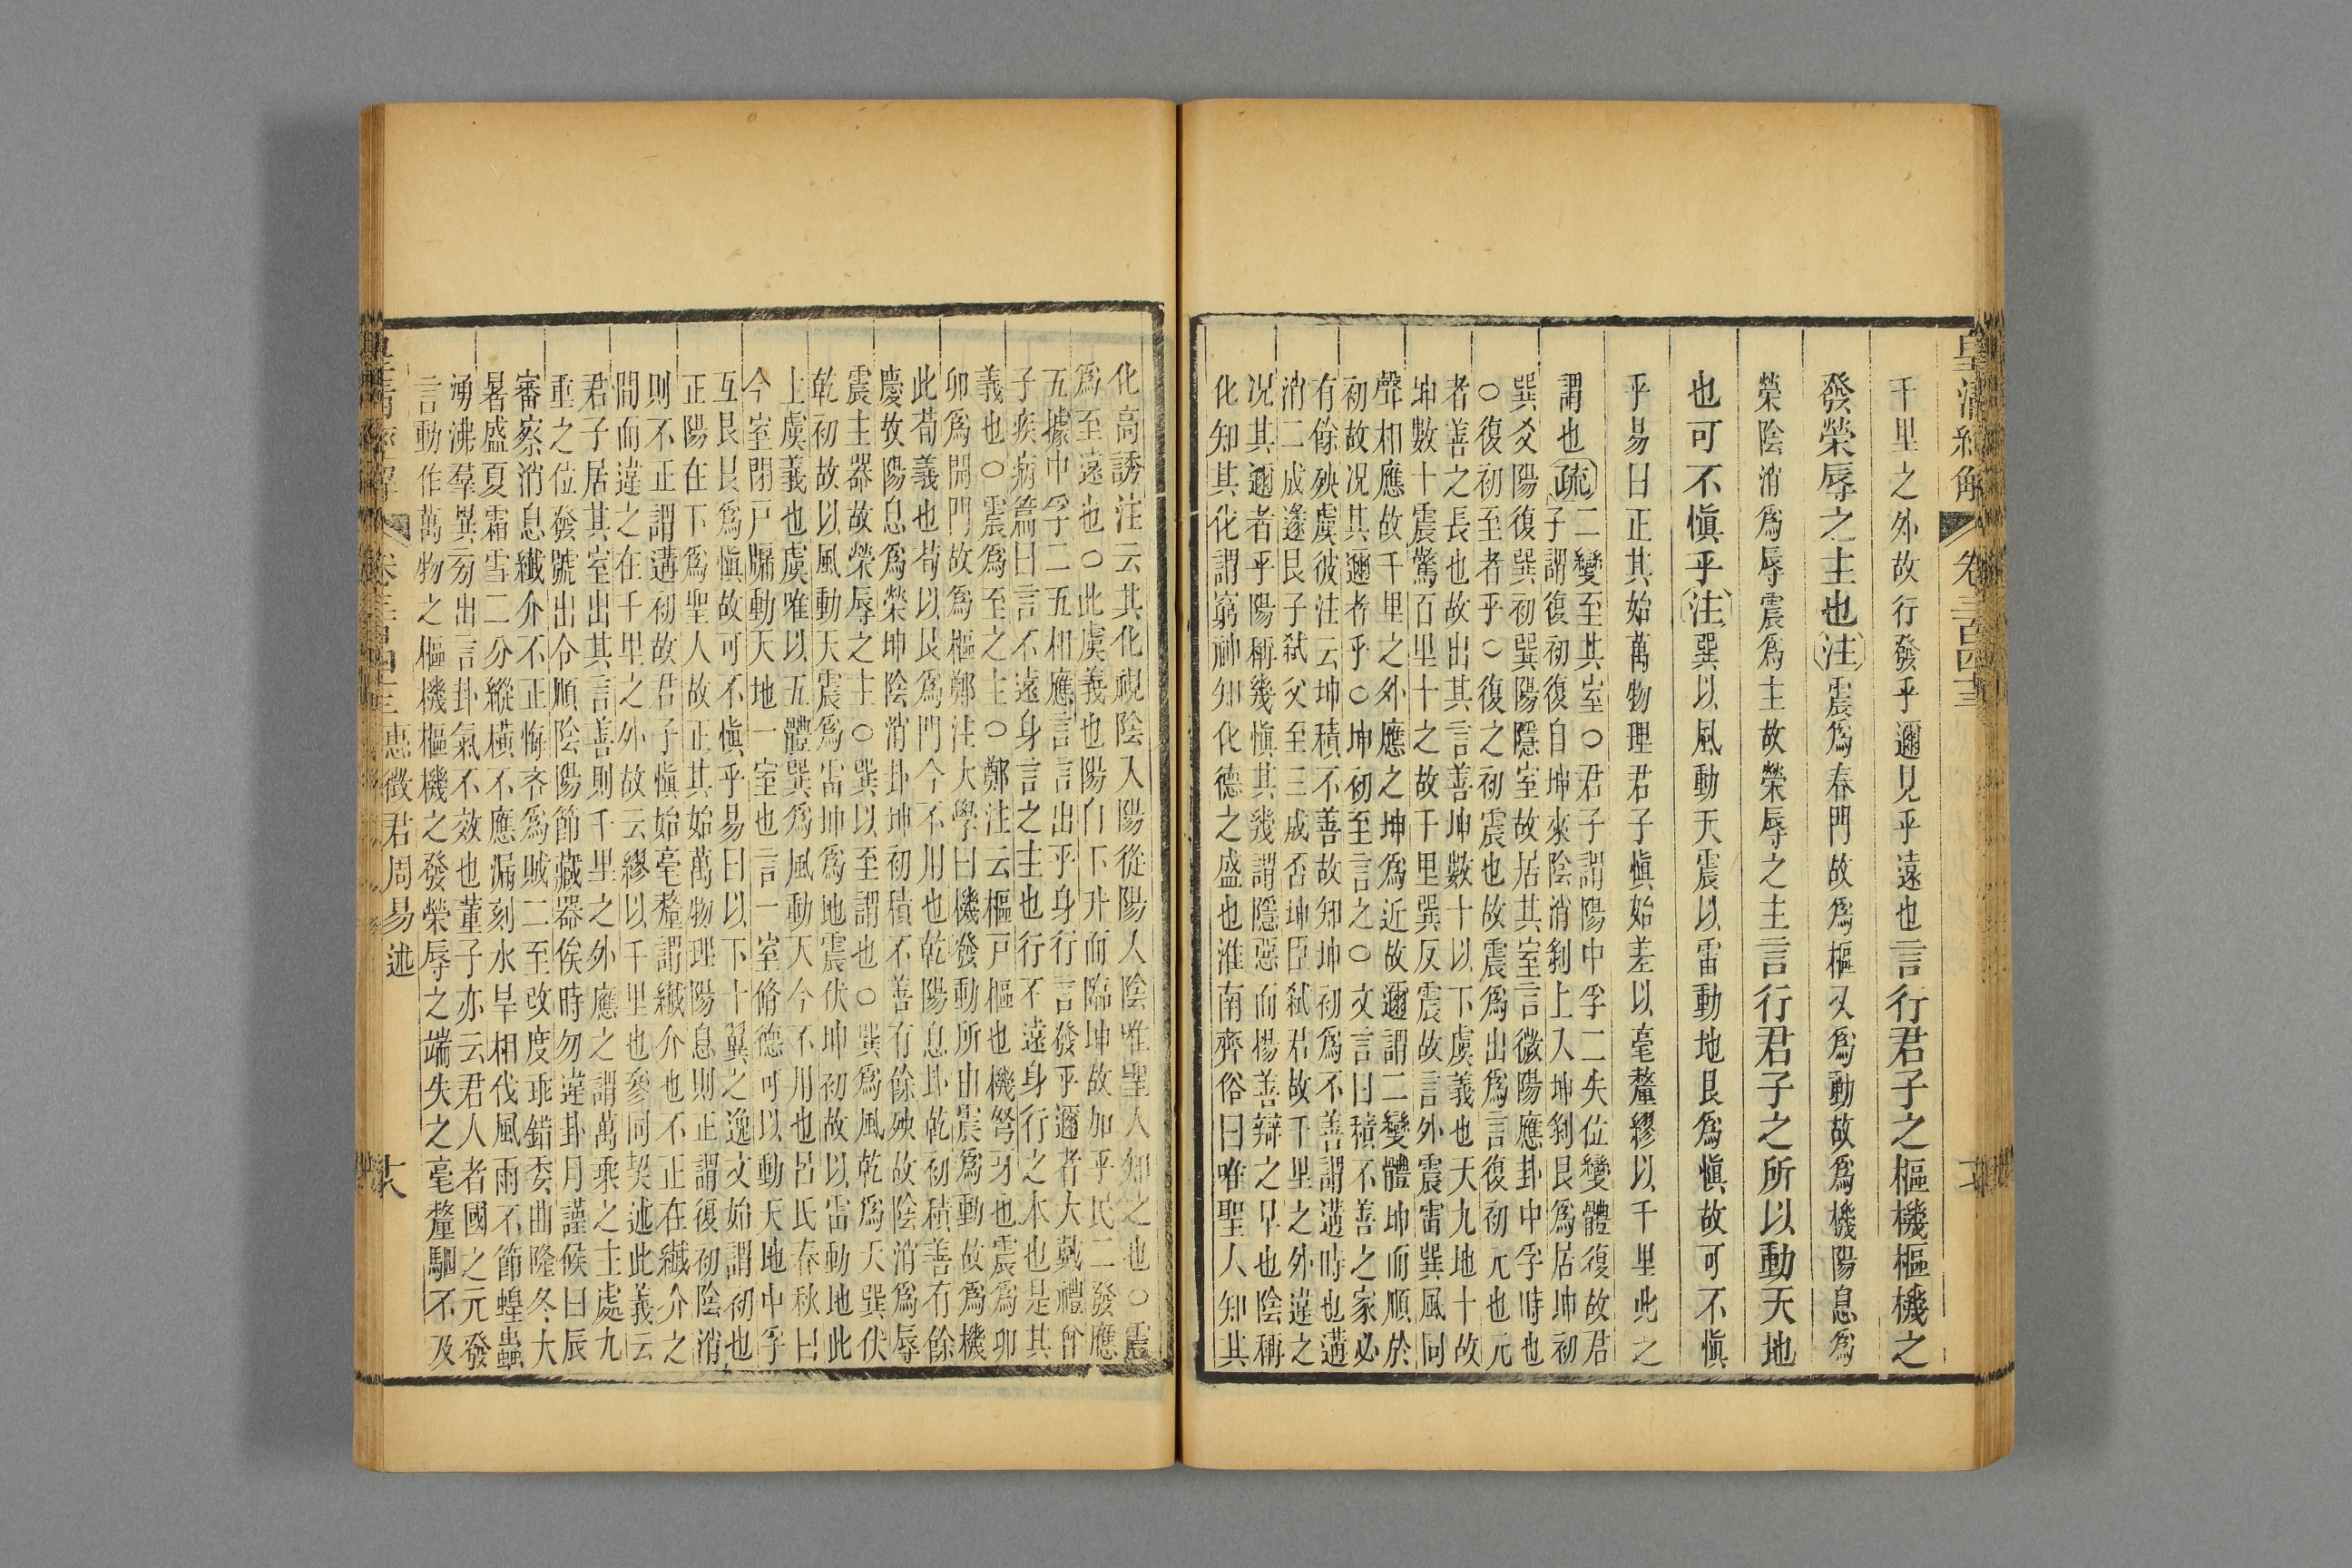 皇清經解 卷三百四十三
千里之外故行發乎邇見乎遠也言行君子之樞機樞機之
發榮辱之主也注震爲春門故爲樞又爲動故爲機陽息爲
榮陰消爲辱震爲主故榮辱之主言行君子之所以動天地
也可不愼乎注巽以風動天震以雷動地艮爲愼故可不愼
乎易曰正其始萬物理君子愼始差以毫釐繆以千里此之
謂也疏
二變至其室○君子謂陽中孚二失位變體復故君
子謂復初復自坤來陰消剝上入坤剝艮爲居坤初
巽爻陽復巽初巽陽隱室故居其室言微陽應卦中孚時也
○復初至者乎○復之初震也故震爲出爲言復初元也元
者善之長也故出其言善坤數十以下虞義也天九地十故
坤數十震驚百里十之故千里巽反震故言外震雷巽風同
聲相應故千里之外應之坤爲近故邇謂二變體坤而順於
初故况其邇者乎○坤初至言之○文言曰積不善之家必
有餘殃虞彼注云坤積不善故知坤初爲不善謂遘時也遘
消二成遂艮子弑父至三成否坤臣弑君故千里之外違之
况其邇者乎陽稱幾愼其幾謂隱惡而揚善辯之早也陰稱
化知其化謂窮神知化德之盛也淮南齊俗曰唯聖人知其
化高誘注云其化視陰入陽從陽入陰唯聖人知之也○震
爲至遠也○此虞義也陽自下升而臨坤故加乎民二發應
五據中孚二五相應言言出乎身行言發乎邇者大戴禮曾
子疾病篇曰言不遠身言之主也行不遠身行之本也是其
義也○震爲至之主○鄭注云樞戶樞也機弩牙也震爲卯
卯爲開門故爲樞鄭注大學曰機發動所由震爲動故爲機
此荀義也荀以艮爲門今不用也乾陽息卦乾初積善有餘
慶故陽息爲榮坤陰消卦坤初積不善有餘殃故陰消爲辱
震主器故榮辱之主○巽以至謂也○巽爲風乾爲天巽伏
乾初故以風動天震爲雷坤爲地震伏坤初故以雷動地此
上虞義也虞唯以五體巽爲風動天今不用也呂氏春秋曰
今室閉戶牖動天地一室也言一室脩德可以動天地中孚
互艮艮爲愼故可不愼乎易曰以下十翼之逸文始謂初也
正陽在下爲聖人故正其始萬物理陽息則正謂復初陰消
則不正謂遘初故君子愼始毫釐謂纖介也不正在纖介之
間而違之在千里之外故云繆以千里也參同契述此義云
君子居其室出其言善則千里之外應之謂萬乘之主處九
重之位發號出令順陰陽節藏器俟時勿違卦月謹候日辰
審察消息纖介不正悔吝爲賊二至改度乖錯委曲隆冬大
暑盛夏霜雪二分縱橫不應漏刻水旱相伐風雨不節蝗蟲
湧沸羣異㫄出言卦氣不效也董子亦云君人者國之元發
言動作萬物之樞機樞機之發榮辱之端失之毫釐駟不及
皇清經解 卷三百四十三 惠徵君周易述 十六